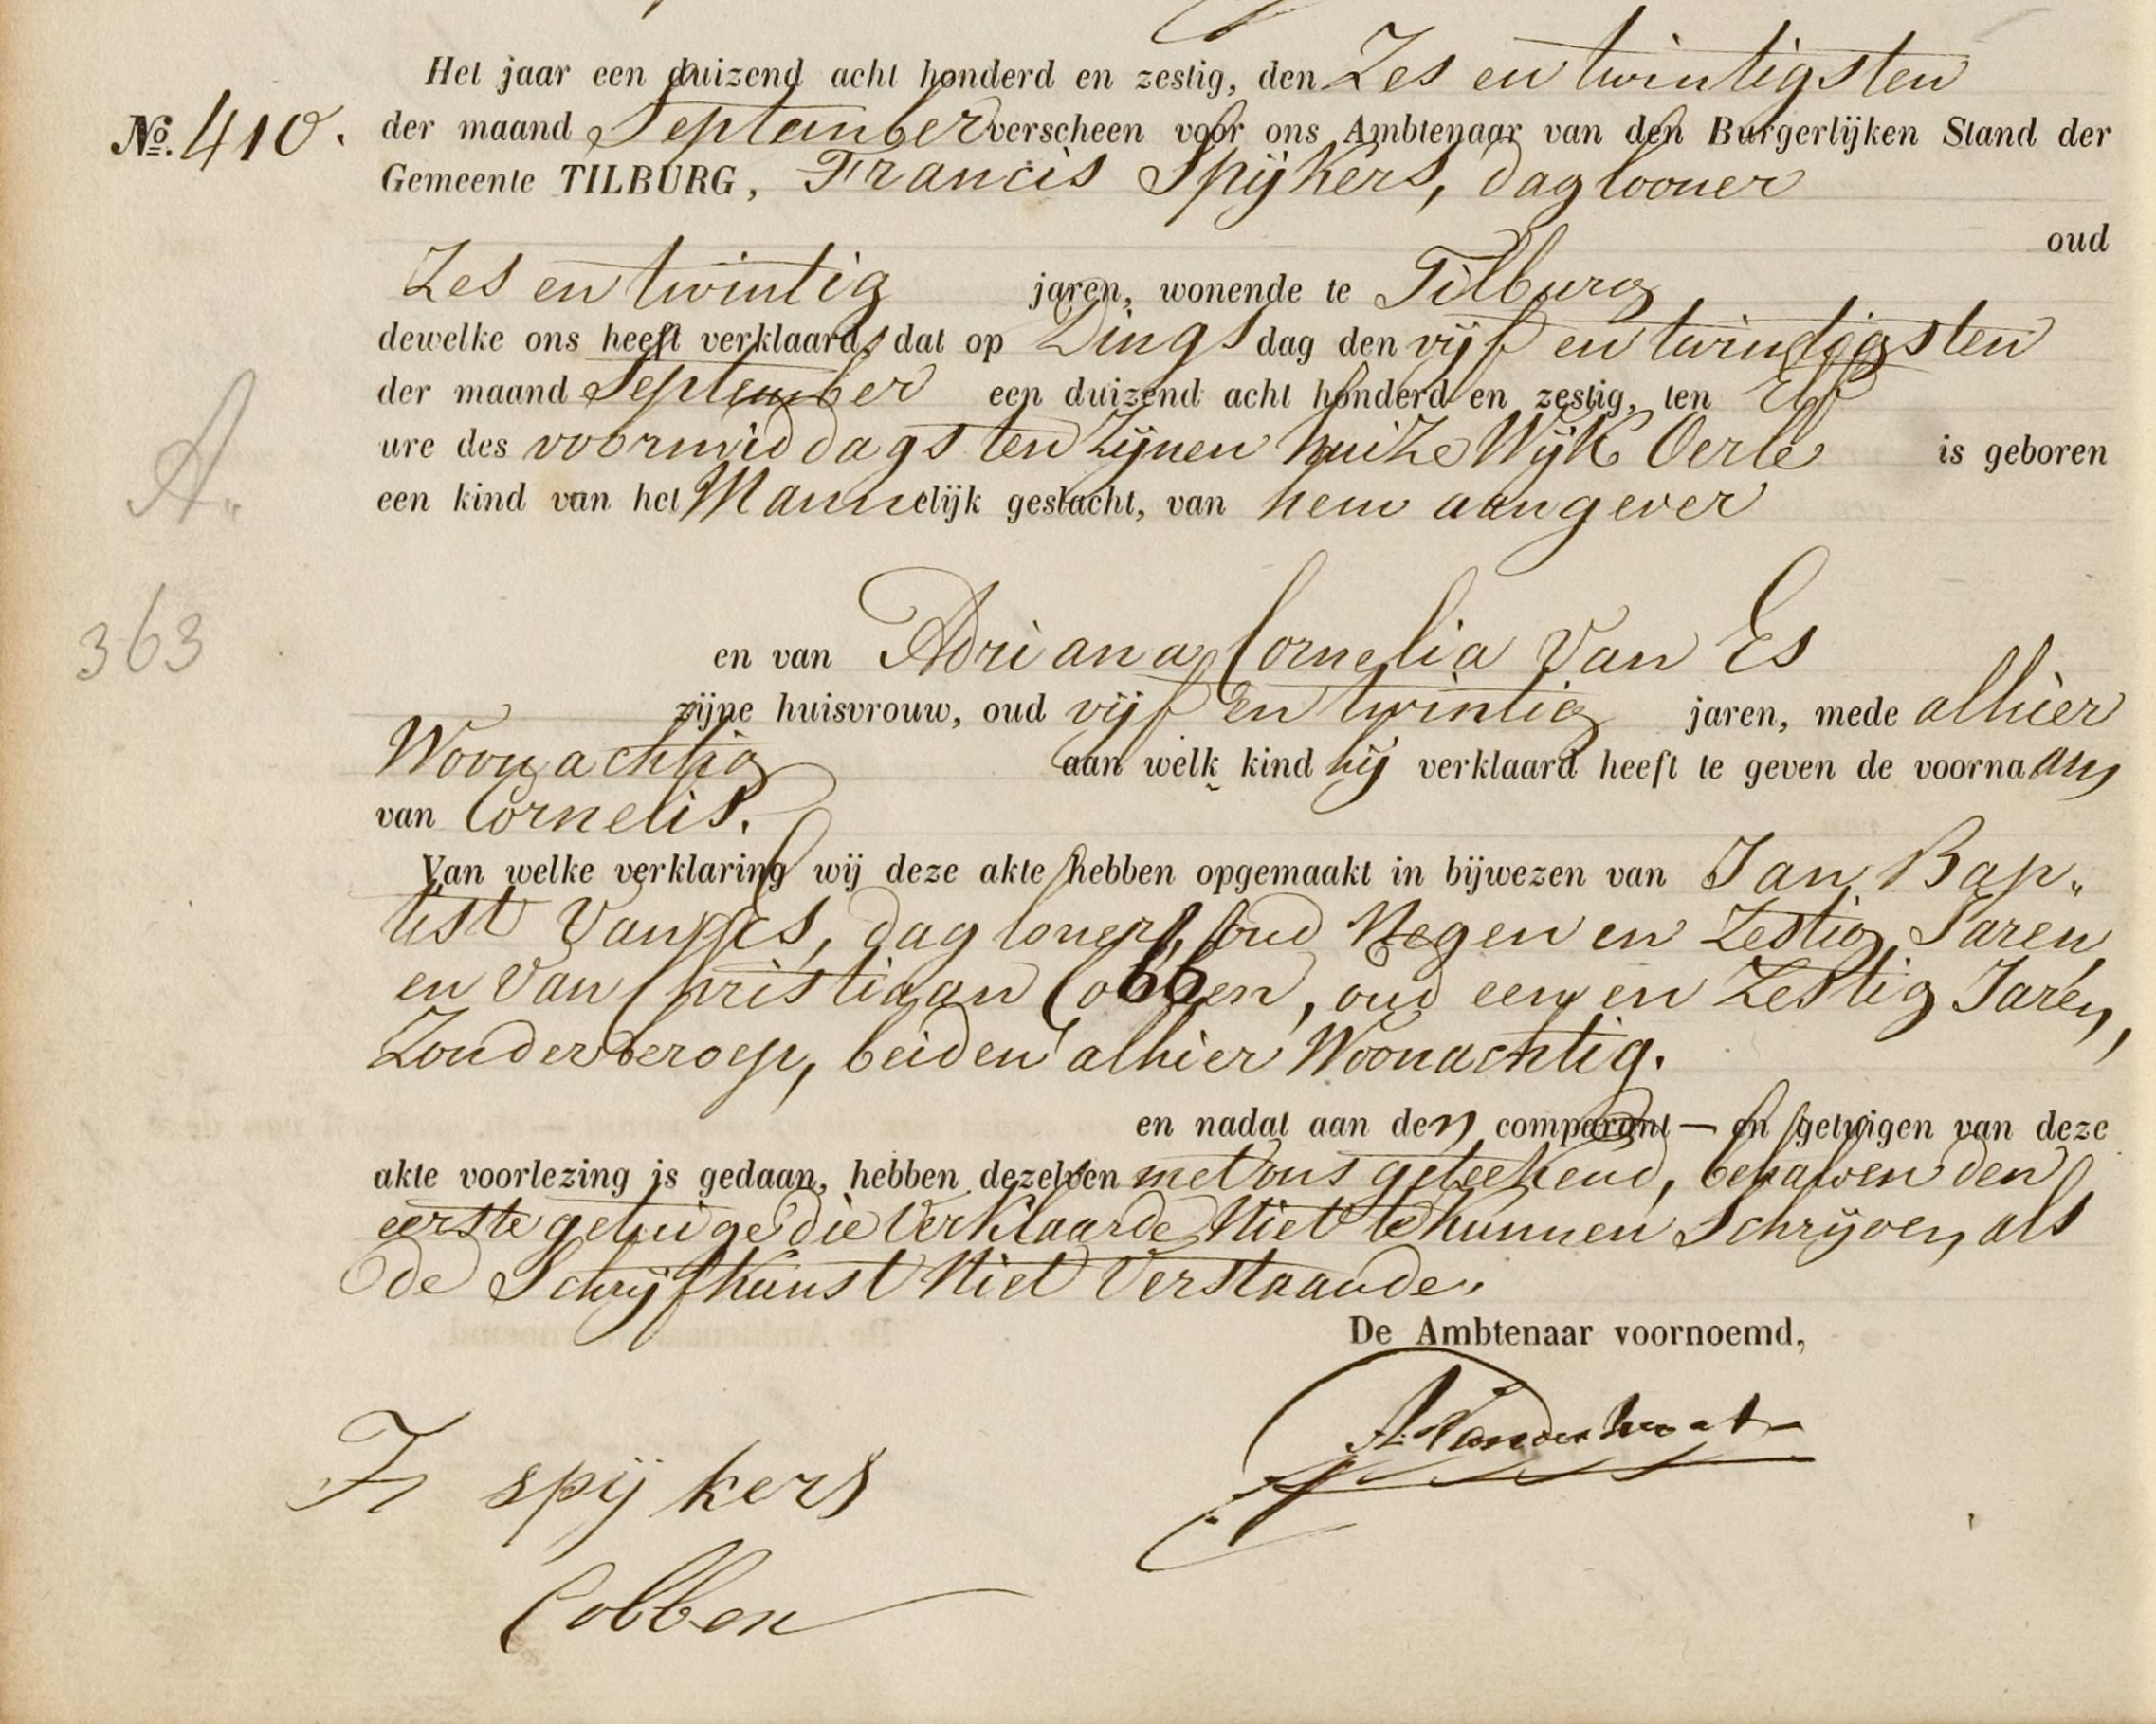 Het jaar een duizend acht honderd en zestig, den Zes en twintigsten
No. 410. der maand September verscheen voor ons Ambtenaar van den Burgerlijken Stand der
Gemeente TILBURG, Francis Spijkers, daglooner
oud
Zes en twintig jaren, wonende te Tilburg,
dewelke ons heeft verklaard, dat op Dingsdag den vijf en twintigsten
der maand September een duizend acht honderd en zestig, ten Elf
ure des voormiddags ten Zijnen huize Wijk Oerle is geboren
een kind van het Mannelijk geslacht, van hem aangever
A.
363
en van Adriana Cornelia Van Es
zijne huisvrouw, oud vijf en twintig jaren, mede alhier
Woonachtig aan welk kind hij verklaard heeft te geven de voornaam
van Cornelis.
Van welke verklaring wij deze akte hebben opgemaakt in bijwezen van Jan Bap„
tist Van Es, dagloner, oud Negen en Zestig Jaren,
en Van Christiaan Cobben, oud een en Zestig Jaren,
Zonder beroep, beiden alhier Woonachtig.
en nadat aan den comparant — en getuigen van deze
akte voorlezing is gedaan, hebben dezelven met ons geteekend, behalven den
eerste getuige die Verklaarde Niet te kunnen Schrijven, als
de Schrijfkunst Niet Verstaande.
De Ambtenaar voornoemd,
Fr spijkers
Cobben